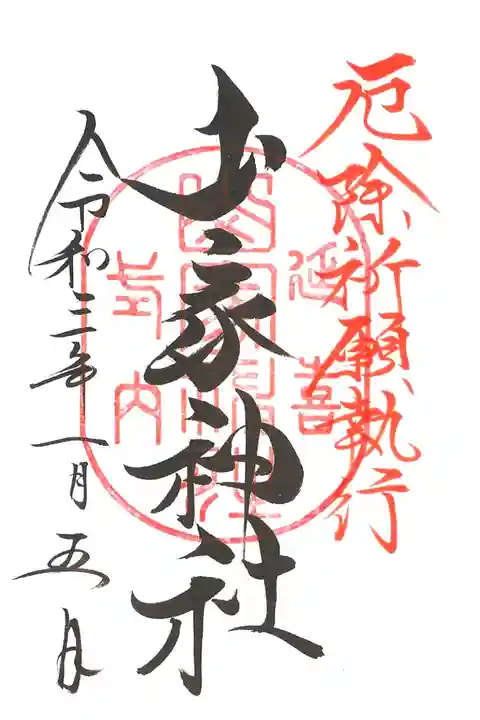 厄除祈願執行
山家神社
延喜
山家神社
式内
令和三年一月五日